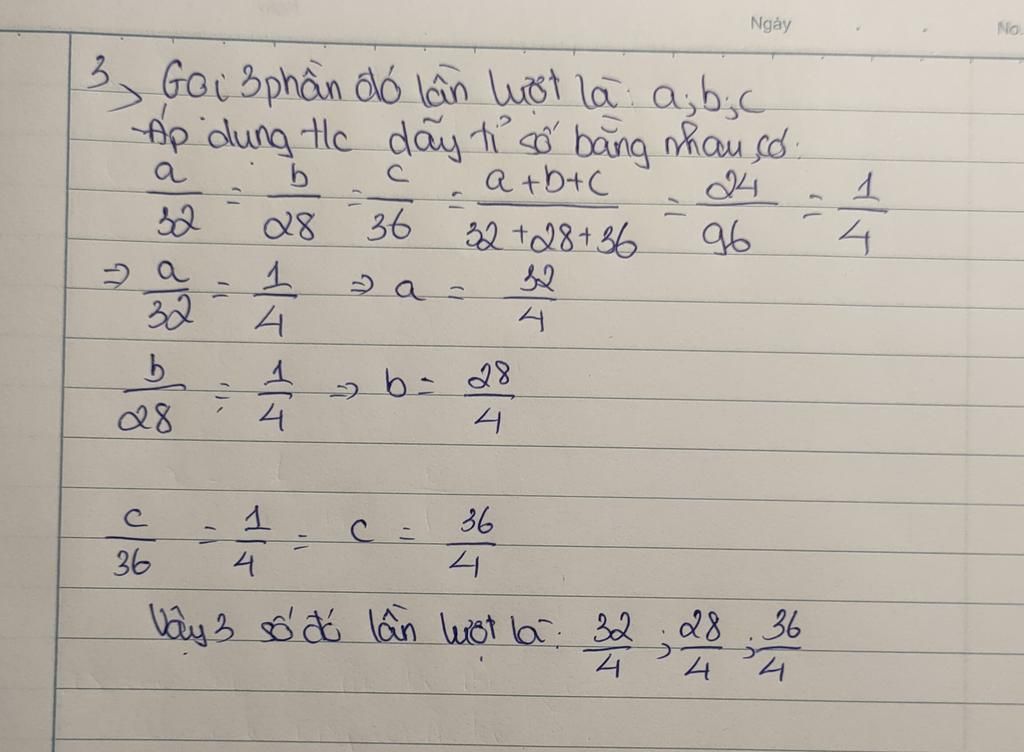 Ngày . . No.
3, Gọi 3 phần đó lần lượt là: a;b;c
Áp dụng t/c dãy tỉ số bằng nhau, có:
a/32 = b/28 = c/36 = a+b+c/32+28+36 = 24/96 = 1/4
=> a/32 = 1/4 => a = 32/4
b/28 = 1/4 => b = 28/4
c/36 = 1/4 = c = 36/4
Vậy 3 số đó lần lượt là: 32/4 ; 28/4 ; 36/4